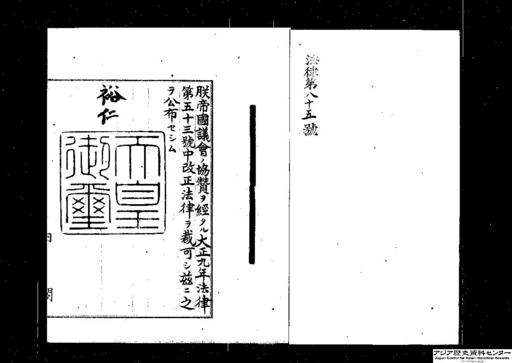 法律第八十五號
朕帝國議會ノ協贊ヲ經タル大正九年法律
第五十三號中改正法律ヲ裁可シ茲ニ之
ヲ公布セシム
裕仁
天皇
御璽
内閣
アジア歴史資料センター
Japan Center for Asian Historical Records